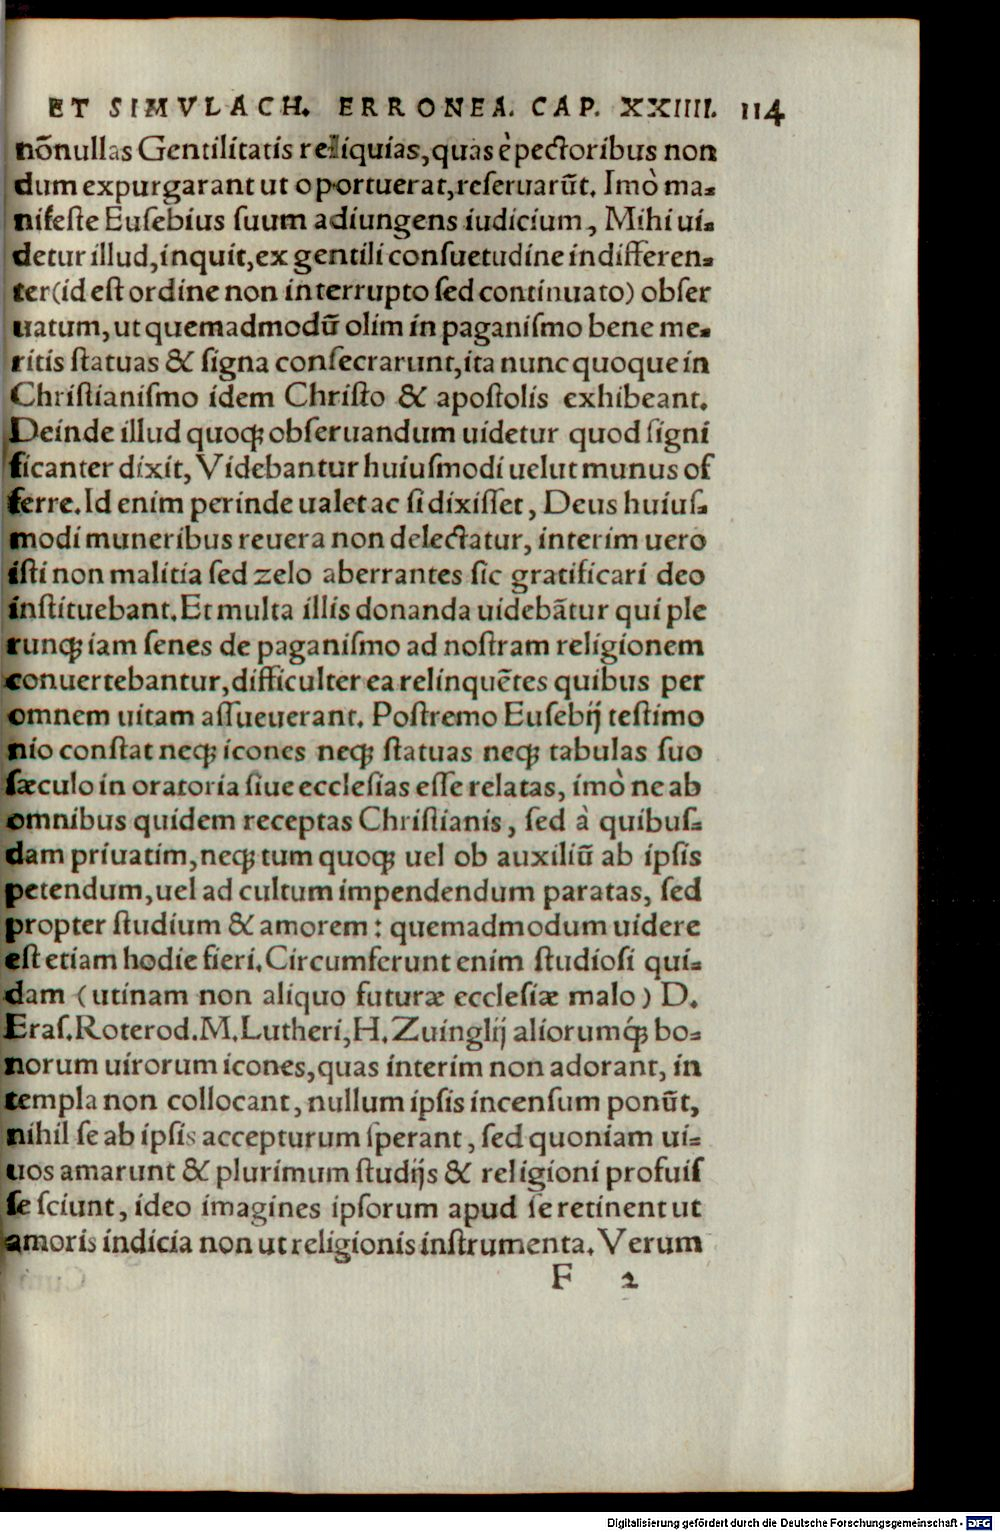 ET SIMVLACH. ERRONEA. CAP. XXIIII. 114
nõnullas Gentilitatis reliquias, quas è pectoribus non
dum expurgarant ut oportuerat, reſeruarũt. Imò ma-
nifeſte Euſebius ſuum adiungens iudicium, Mihi ui-
detur illud, inquit, ex gentili conſuetudine indifferen-
ter (id eſt ordine non interrupto ſed continuato) obſer
uatum, ut quemadmodũ olim in paganiſmo bene me-
ritis ſtatuas & ſigna conſecrarunt, ita nunc quoque in
Chriſtianiſmo idem Chriſto & apoſtolis exhibeant.
Deinde illud quoqꝫ obſeruandum uidetur quod ſigni
ficanter dixit, Videbantur huiuſmodi uelut munus of
ferre. Id enim perinde ualet ac ſi dixiſſet, Deus huiuſ-
modi muneribus reuera non delectatur, interim uero
iſti non malitia ſed zelo aberrantes ſic gratificari deo
inſtituebant. Et multa illis donanda uidebãtur qui ple
runqꝫ iam ſenes de paganiſmo ad noſtram religionem
conuertebantur, difficulter ea relinquẽtes quibus per
omnem uitam aſſueuerant. Poſtremo Euſebij teſtimo
nio conſtat neqꝫ icones neqꝫ ſtatuas neqꝫ tabulas ſuo
ſæculo in oratoria ſiue eccleſias eſſe relatas, imò ne ab
omnibus quidem receptas Chriſtianis, ſed à quibuſ-
dam priuatim, neqꝫ tum quoqꝫ uel ob auxiliũ ab ipſis
petendum, uel ad cultum impendendum paratas, ſed
propter ſtudium & amorem: quemadmodum uidere
eſt etiam hodie fieri. Circumferunt enim ſtudioſi qui-
dam (utinam non aliquo futuræ eccleſiæ malo) D.
Eraſ. Roterod. M. Lutheri, H. Zuinglij aliorumq́ꝫ bo-
norum uirorum icones, quas interim non adorant, in
templa non collocant, nullum ipſis incenſum ponũt,
nihil ſe ab ipſis accepturum ſperant, ſed quoniam ui-
uos amarunt & plurimum ſtudijs & religioni profuiſ
ſe ſciunt, ideo imagines ipſorum apud ſe retinent ut
amoris indicia non ut religionis inſtrumenta. Verum
F 2
Digitalisierung gefördert durch die Deutsche Forschungsgemeinschaft - DFG